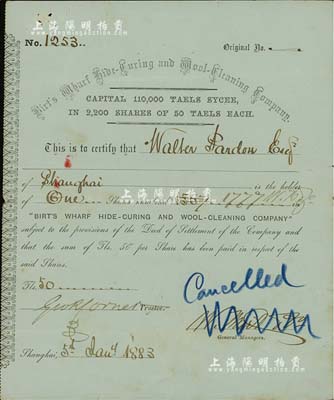 上海陽明拍賣
No. 1253.
Original No.
Birt's Wharf Hide-Curing and Wool-Cleaning Company.
CAPITAL 110,000 TAELS SYCEE,
IN 2,200 SHARES OF 50 TAELS EACH.
This is to certify that Walter Pardon Esqr
of Shanghai is the holder
of One Share numbered 1777
"BIRT'S WHARF HIDE-CURING AND WOOL-CLEANING COMPANY"
subject to the provisions of the Deed of Settlement of the Company and
that the sum of Tls. 50 per Share has been paid in respect of the
said Shares.
Tls. 50
Cancelled
Trustee.
General Managers.
Shanghai, 5th Jany 1883
上海陽明拍賣